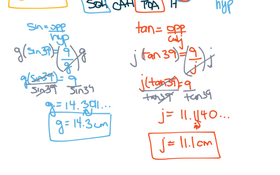 SOH CAH TOA H hyp
sin = opp/hyp
g(sin39)=(9/g)g
g(sin39)/sin39 = 9/sin39
g = 14.301...
g = 14.3cm
tan = opp/adj
j(tan39)=(9/j)j
j(tan39)/tan39 = 9/tan39
j = 11.1140...
j = 11.1cm